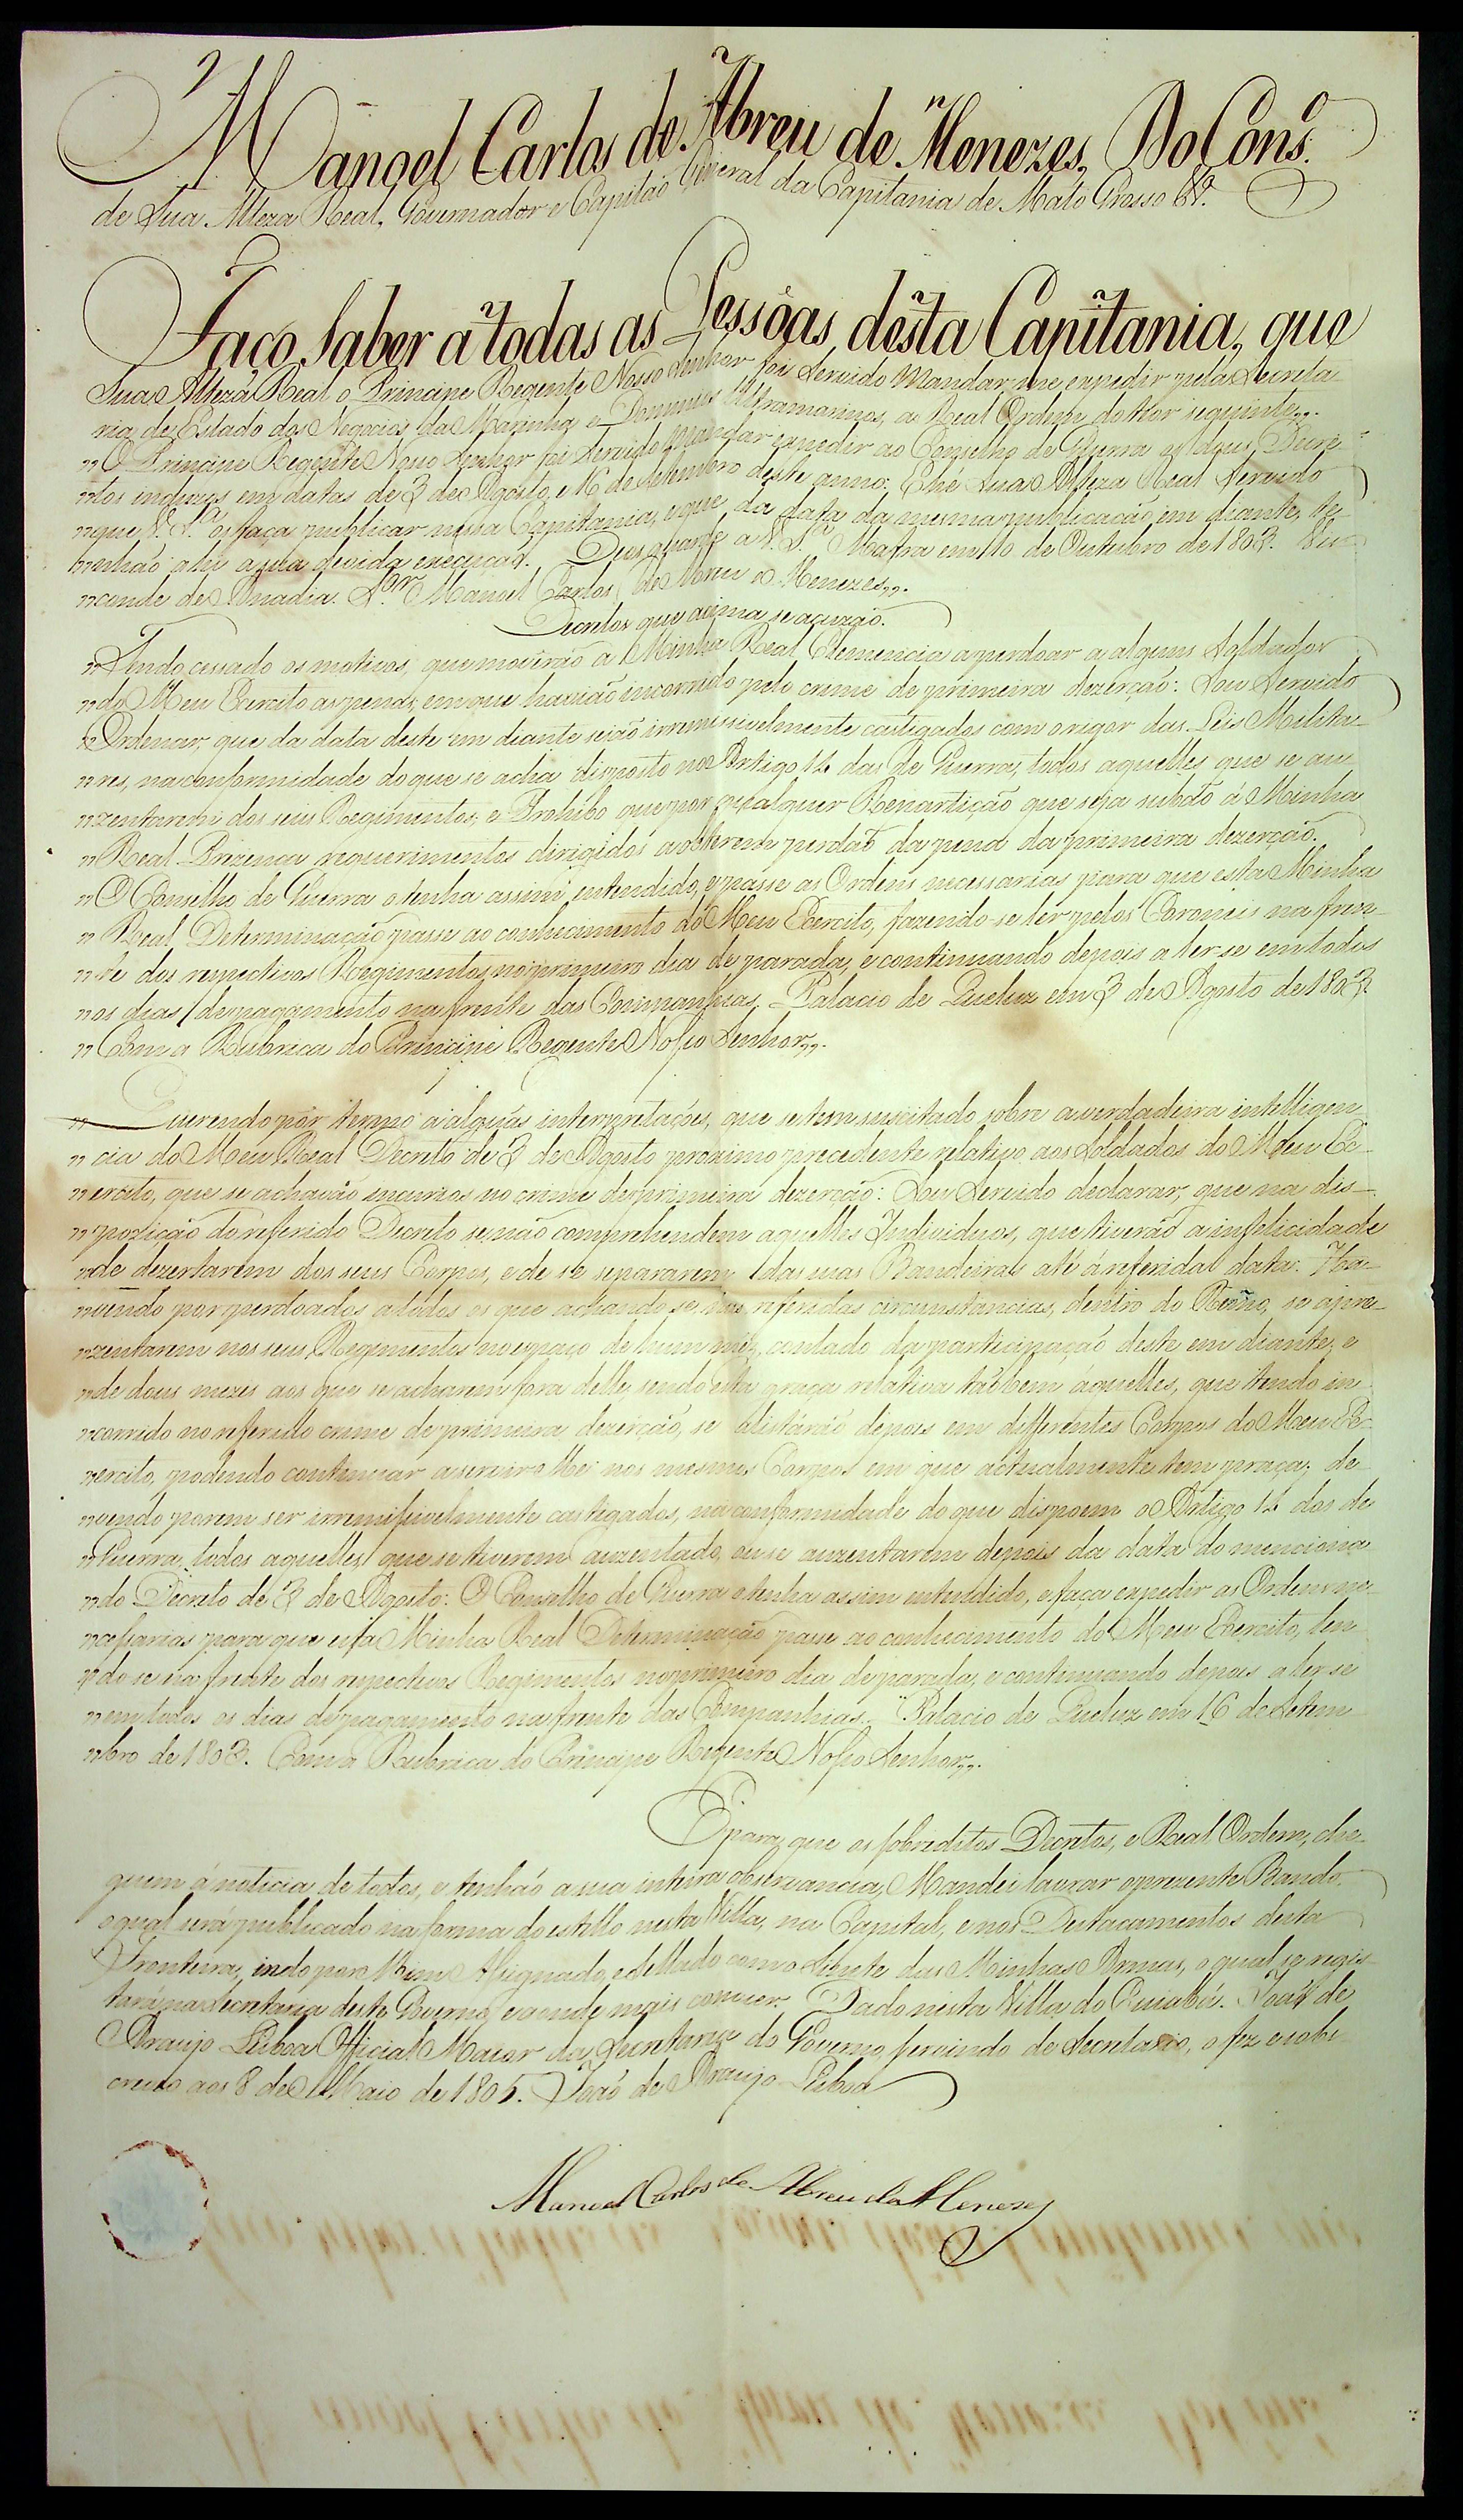 Manoel Carlos de Abreu de Menezes, Do Cons.º
de Sua Alteza Real, Governador e Capitaõ General da Capitania de Mato Grosso &ª.
Faço Saber a todas as Pessôas desta Capitania, que
Sua Alteza Real o Principe Regente Nosso Senhor foi Servido Mandar-me expedir pela Secreta-
ria de Estado dos Negocios da Marinha e Dominios Ultramarinos, a Real Ordem do theor seguinte,,.
"O Principe Regente Nosso Senhor foi Servido Mandar expedir ao Conselho de Guerra os dous Decre-
"tos incluzos em datas de 3 de Agosto, e 16 de Setembro deste anno: E hé Sua Alteza Real Servido
"que V. S.ª os faça publicar nessa Capitania, e que da data da mesma publicação em diante, te-
"nhão ahi a sua devida execução. Deos guarde a V. S.ª Mafra em 10 de Outubro de 1803. Vis-
"conde de Anadia. S.ᵒʳ Manoel Carlos de Abreu e Menezes,,.
Decretos que acima se acuzão.
"Tendo cessado os motivos, que moverão a Minha Real Clemencia a perdoar a alguns Soldados
"do Meu Exercito as penas, em que havião incorrido pelo crime de primeira dezerção: Sou Servido
"Ordenar, que da data deste em diante sejão irremissivelmente castigados com o rigor das Leis Milita-
"res, na conformidade do que se acha disposto no Artigo 14 das de Guerra, todos aquelles que se au-
"zentarem dos seus Regimentos; e Prohibo que por qualquer Repartição que seja subão á Minha
"Real Prezença requerimentos dirigidos a obterem perdaõ da pena da primeira dezerção.
"O Conselho de Guerra o tenha assim entendido, e passe as Ordens necessarias para que esta Minha
"Real Determinação passe ao conhecimento do Meu Exercito, fazendo-se ler pelos Coroneis na fren-
"te dos respectivos Regimentos no primeiro dia de parada, e continuando depois a ler-se em todos
"os dias de pagamento na frente das Companhias. Palacio de Queluz em 3 de Agosto de 1803.
"Com a Rubrica do Principe Regente Nosso Senhor,,.
"Querendo pôr termo a algũas interpretações, que se tem suscitado sobre a verdadeira intelligen-
"cia do Meu Real Decreto de 3 de Agosto proximo precedente relativo aos Soldados do Meu Ex-
"ercito, que se achavão incursos no crime de primeira dezerção: Sou Servido declarar, que na dis-
"pozição do referido Decreto se não comprehendem aquelles Individuos, que tiverão a infelicidade
"de dezertarem dos seus Corpos, e de se separarem das suas Bandeiras até á referida data: Ha-
"vendo por perdoados a todos os que achando-se nas referidas circunstancias, dentro do Reino, se apre-
"zentarem nos seus Regimentos no espaço de hum mez, contado da participação deste em diante, e
"de dous mezes aos que se acharem fora delle; sendo esta graça relativa taõbem áquelles, que tendo in-
"corrido no referido crime de primeira dezerção, se alistárão depois em differentes Corpos do Meu Ex-
"ercito, podendo continuar a servir-Me nos mesmos Corpos em que actualmente tem praça; de-
"vendo porem ser irremissivelmente castigados, na conformidade do que dispoem o Artigo 14 dos de
"Guerra, todos aquelles que se tiverem auzentado, ou se auzentarem depois da data do menciona-
"do Decreto de 3 de Agosto: O Conselho de Guerra o tenha assim entendido, e faça expedir as Ordens ne-
"cessarias para que esta Minha Real Determinação passe ao conhecimento do Meu Exercito, len-
"do-se na frente dos respectivos Regimentos no primeiro dia de parada, e continuando depois a ler-se
"em todos os dias de pagamento na frente das Companhias. Palacio de Queluz em 16 de Setem-
"bro de 1803. Com a Rubrica do Principe Regente Nosso Senhor,,.
E para que os sobreditos Decretos, e Real Ordem, che-
guem á noticia de todos, e tenhão a sua inteira observancia, Mandei lavrar o prezente Bando,
o qual será publicado na forma do estillo nesta Villa, na Capital, e nos Destacamentos desta
Fronteira, indo por Mim Assignado, e Sellado com o Sinete das Minhas Armas, o qual se regis-
tará na Secretaria deste Governo, e aonde mais convier. Dado nesta Villa do Cuiabá. Joaõ de
Araujo Lisboa Official Maior da Secretaria do Governo, servindo de Secretario, o fez e sobs-
creveo aos 8 de Maio de 1805. Joaõ de Araujo Lisboa
Manoel Carlos de Abreu de Menezes